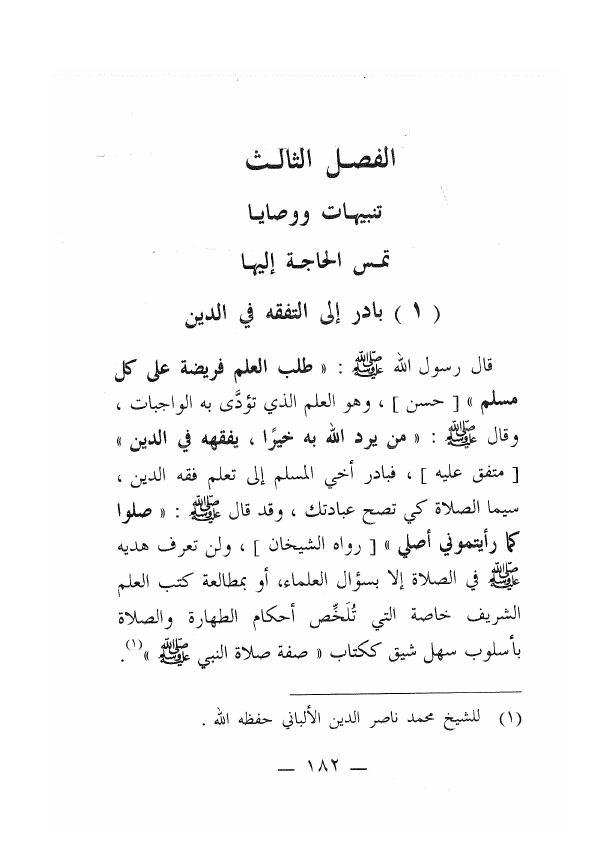 الفصل الثالث
تنبيهات ووصايا
تمس الحاجة إليها
( ١ ) بادر إلى التفقه في الدين
قال رسول الله ﷺ : « طلب العلم فريضة على كل
مسلم » [ حسن ] ، وهو العلم الذي تؤدَّى به الواجبات ،
وقال ﷺ : « من يرد الله به خيرًا ، يفقهه في الدين »
[ متفق عليه ] ، فبادر أخي المسلم إلى تعلم فقه الدين ،
سيما الصلاة كي تصح عبادتك ، وقد قال ﷺ : « صلوا
كما رأيتموني أصلي » [ رواه الشيخان ] ، ولن تعرف هديه
ﷺ في الصلاة إلا بسؤال العلماء، أو بمطالعة كتب العلم
الشريف خاصة التي تُلَخِّص أحكام الطهارة والصلاة
بأسلوب سهل شيق ككتاب « صفة صلاة النبي ﷺ »(١).
(١) للشيخ محمد ناصر الدين الألباني حفظه الله .
— ١٨٢ —